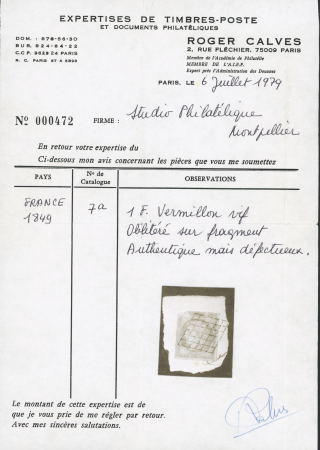 EXPERTISES DE TIMBRES-POSTE
ET DOCUMENTS PHILATÉLIQUES
DOM. : 878-56-30
BUR. 824-84-22
C.C.P. 9629 24 PARIS
R. C. PARIS 67 A 5890
ROGER CALVES
2, RUE FLÉCHIER, 75009 PARIS
Membre de l'Académie de Philatélie
MEMBRE DE L'A.I.E.P.
Expert près l'Administration des Douanes
PARIS, LE 6 Juillet 1979
No 000472
FIRME : Studio Philatélique
Montpellier
En retour votre expertise du
Ci-dessous mon avis concernant les pièces que vous me soumettez
PAYS
No de Catalogue
OBSERVATIONS
FRANCE
1849
7a
1 F. Vermillon vif
Oblitéré sur fragment
Authentique mais défectueux.
Le montant de cette expertise est de
que je vous prie de me régler par retour.
Avec mes sincères salutations.